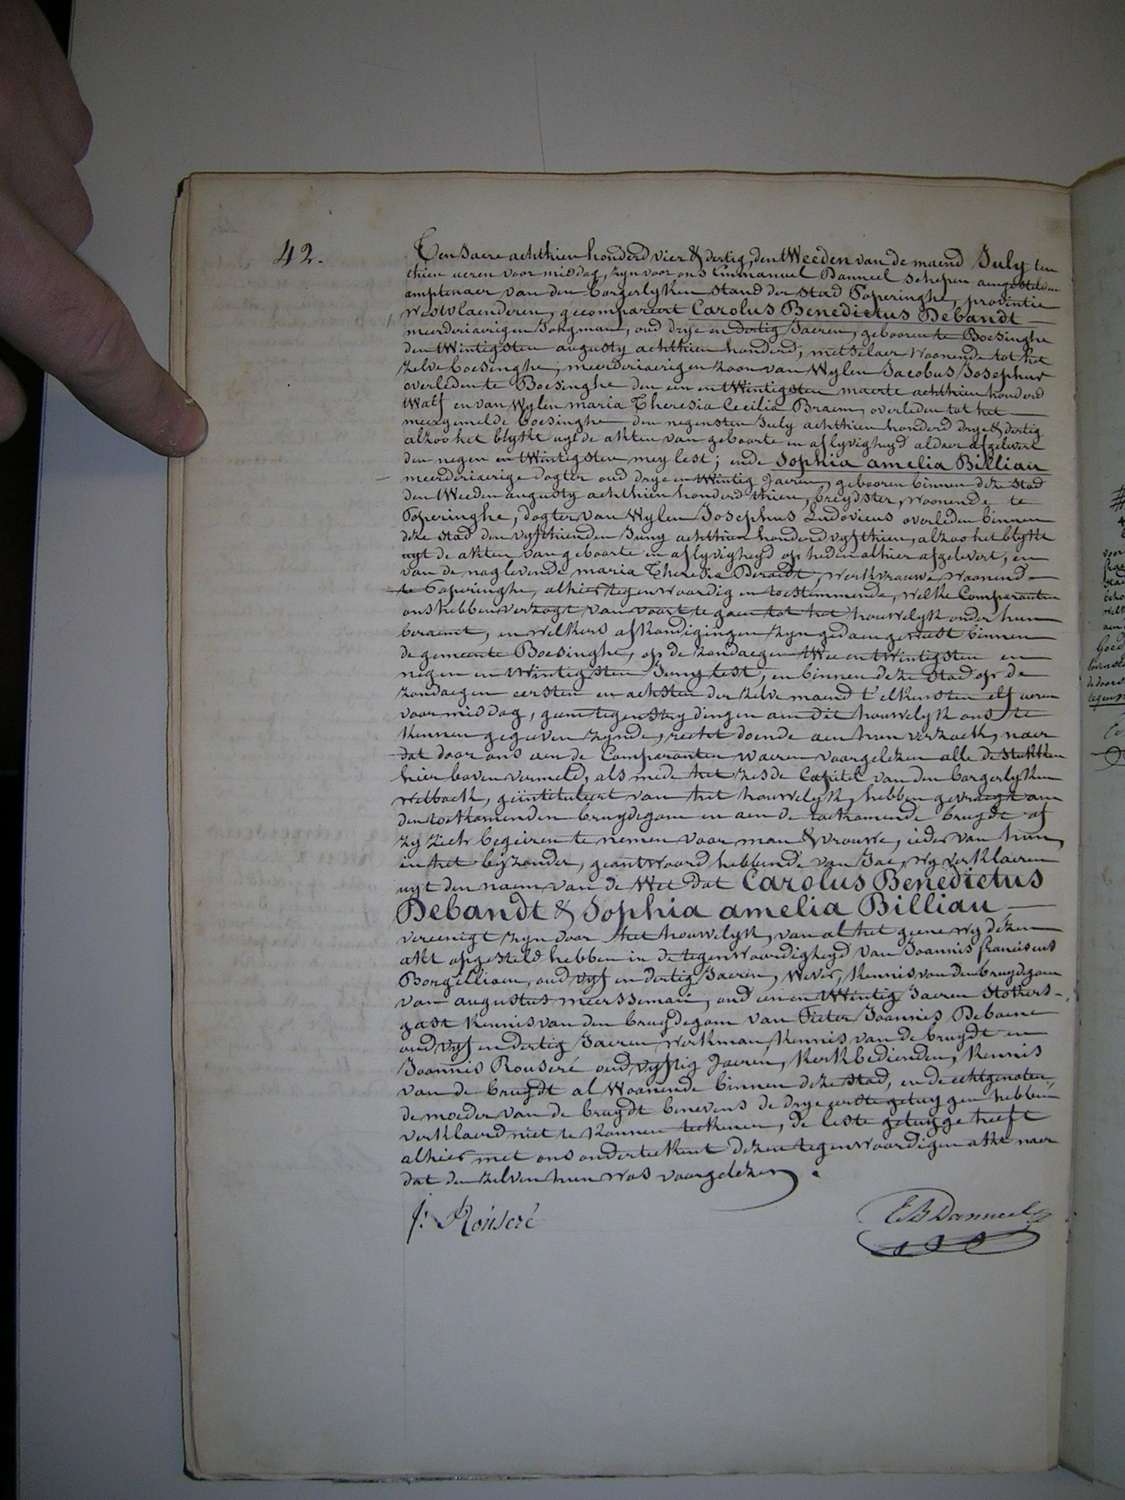 42.
Ten Jaere achthien honderd vier & dertig, den tWeeden van de maend July ten
thien ueren voor middag, zyn voor ons Emmanuel Danneel schepen aengestelden
amptenaer van den borgerlyken stand der stad Poperinghe, provintie
Westvlaenderen, gecompareert Carolus Benedictus Debandt
meerderiaerigen Jongman, oud drye en dertig Jaeren, gebooren te Boesinghe
den tWintigsten augusty achthien honderd, metselaer Woonende tot het
zelve boesinghe, meerderiaerigen zoon van Wylen Jacobus Josephus
overleden te Boesinghe den een en tWintigsten maerte achthien honderd
Walf en van Wylen maria Theresia Cecilia Braem, overleden tot het
meergemelde boesinghe den negensten July achthien honderd drye & dertig
alzoo het blykt uyt de akten van geboorte en aflyvigheyd aldaer afgelevert
den negen en tWintigsten mey lest; ende Sophia amelia Billiau
meerderiaerige dogter oud drye en tWintig Jaeren, gebooren binnen deze stad
den tWeeden augusty achthien honderd thien, breydster, woonende te
Poperinghe, dogter van Wylen Josephus Ludovicus overleden binnen
deze stad den vyfthienden Juny achthien honderd vyfthien, alzoo het blykt
uyt de akten van geboorte en aflyvigheyd op heden alhier afgelevert, en
van de naglevende maria Theresia Beraedt, werkvrouwe woonend
te Poperinghe, alhier tegenwoordig en toestemmende, welke Comparanten
ons hebben verzogt van voort te gaen tot het houwelyk onder hun
beraemt, en welkers afkondigingen zyn gedaen geweest binnen
de gemeente Boesinghe, op de zondaegen twee en tWintigsten en
negen en tWintigsten Juny lest, en binnen deze stad op de
zondaegen eersten en achsten der zelve maend t'elkensten elf ueren
voor middag, geen tegenstrydingen aen dit houwelyk ons te
kennen gegeven zynde, recht doende aen hun verzoek, naer
dat door ons aen de Comparanten waeren voorgelezen alle de stukken
hier boven vermeld, als mede het zesde Capitel van den borgerlyken
wetboek, geïntituleert van het houwelyk, hebben gevraegt aen
den toekomenden bruydegom en aen de toekomende bruydt of
zy zich begeiren te nemen voor man & vrouwe, ieder van hun,
in het byzonder, geantwoord hebbende van Jae, wy verklaeren
uyt den naem van de Wet dat Carolus Benedictus
Debandt & Sophia amelia Billiau
vereenigt zyn door het houwelyk, van al het geene wy dezen
akt opgesteld hebben in de tegenwoordigheyd van Joannis franciscus
Borgellioen, oud vyf en dertig Jaeren, Wever, kennis van den bruydgom
van augustus meersseman, oud een en tWintig Jaeren Stokers-
gast kennis van den bruydegom van Pieter Joannis Debaene
oud vyf en dertig Jaeren, werkman kennis van de bruydt en
Joannis Rouseré oud vyftig Jaeren, kerkbedienden, kennis
van de bruydt al Woonende binnen deze stad, en de echtgenoten,
de moeder van de bruydt benevens de drye eerste getuygen hebben
verklaerd niet te konnen teekenen, de leste getuyge heeft
alhier met ons onderteekent dezen tegenwoordigen akt naer
dat den zelven hun was voorgelezen.
J: Rouseré
E B Danneel